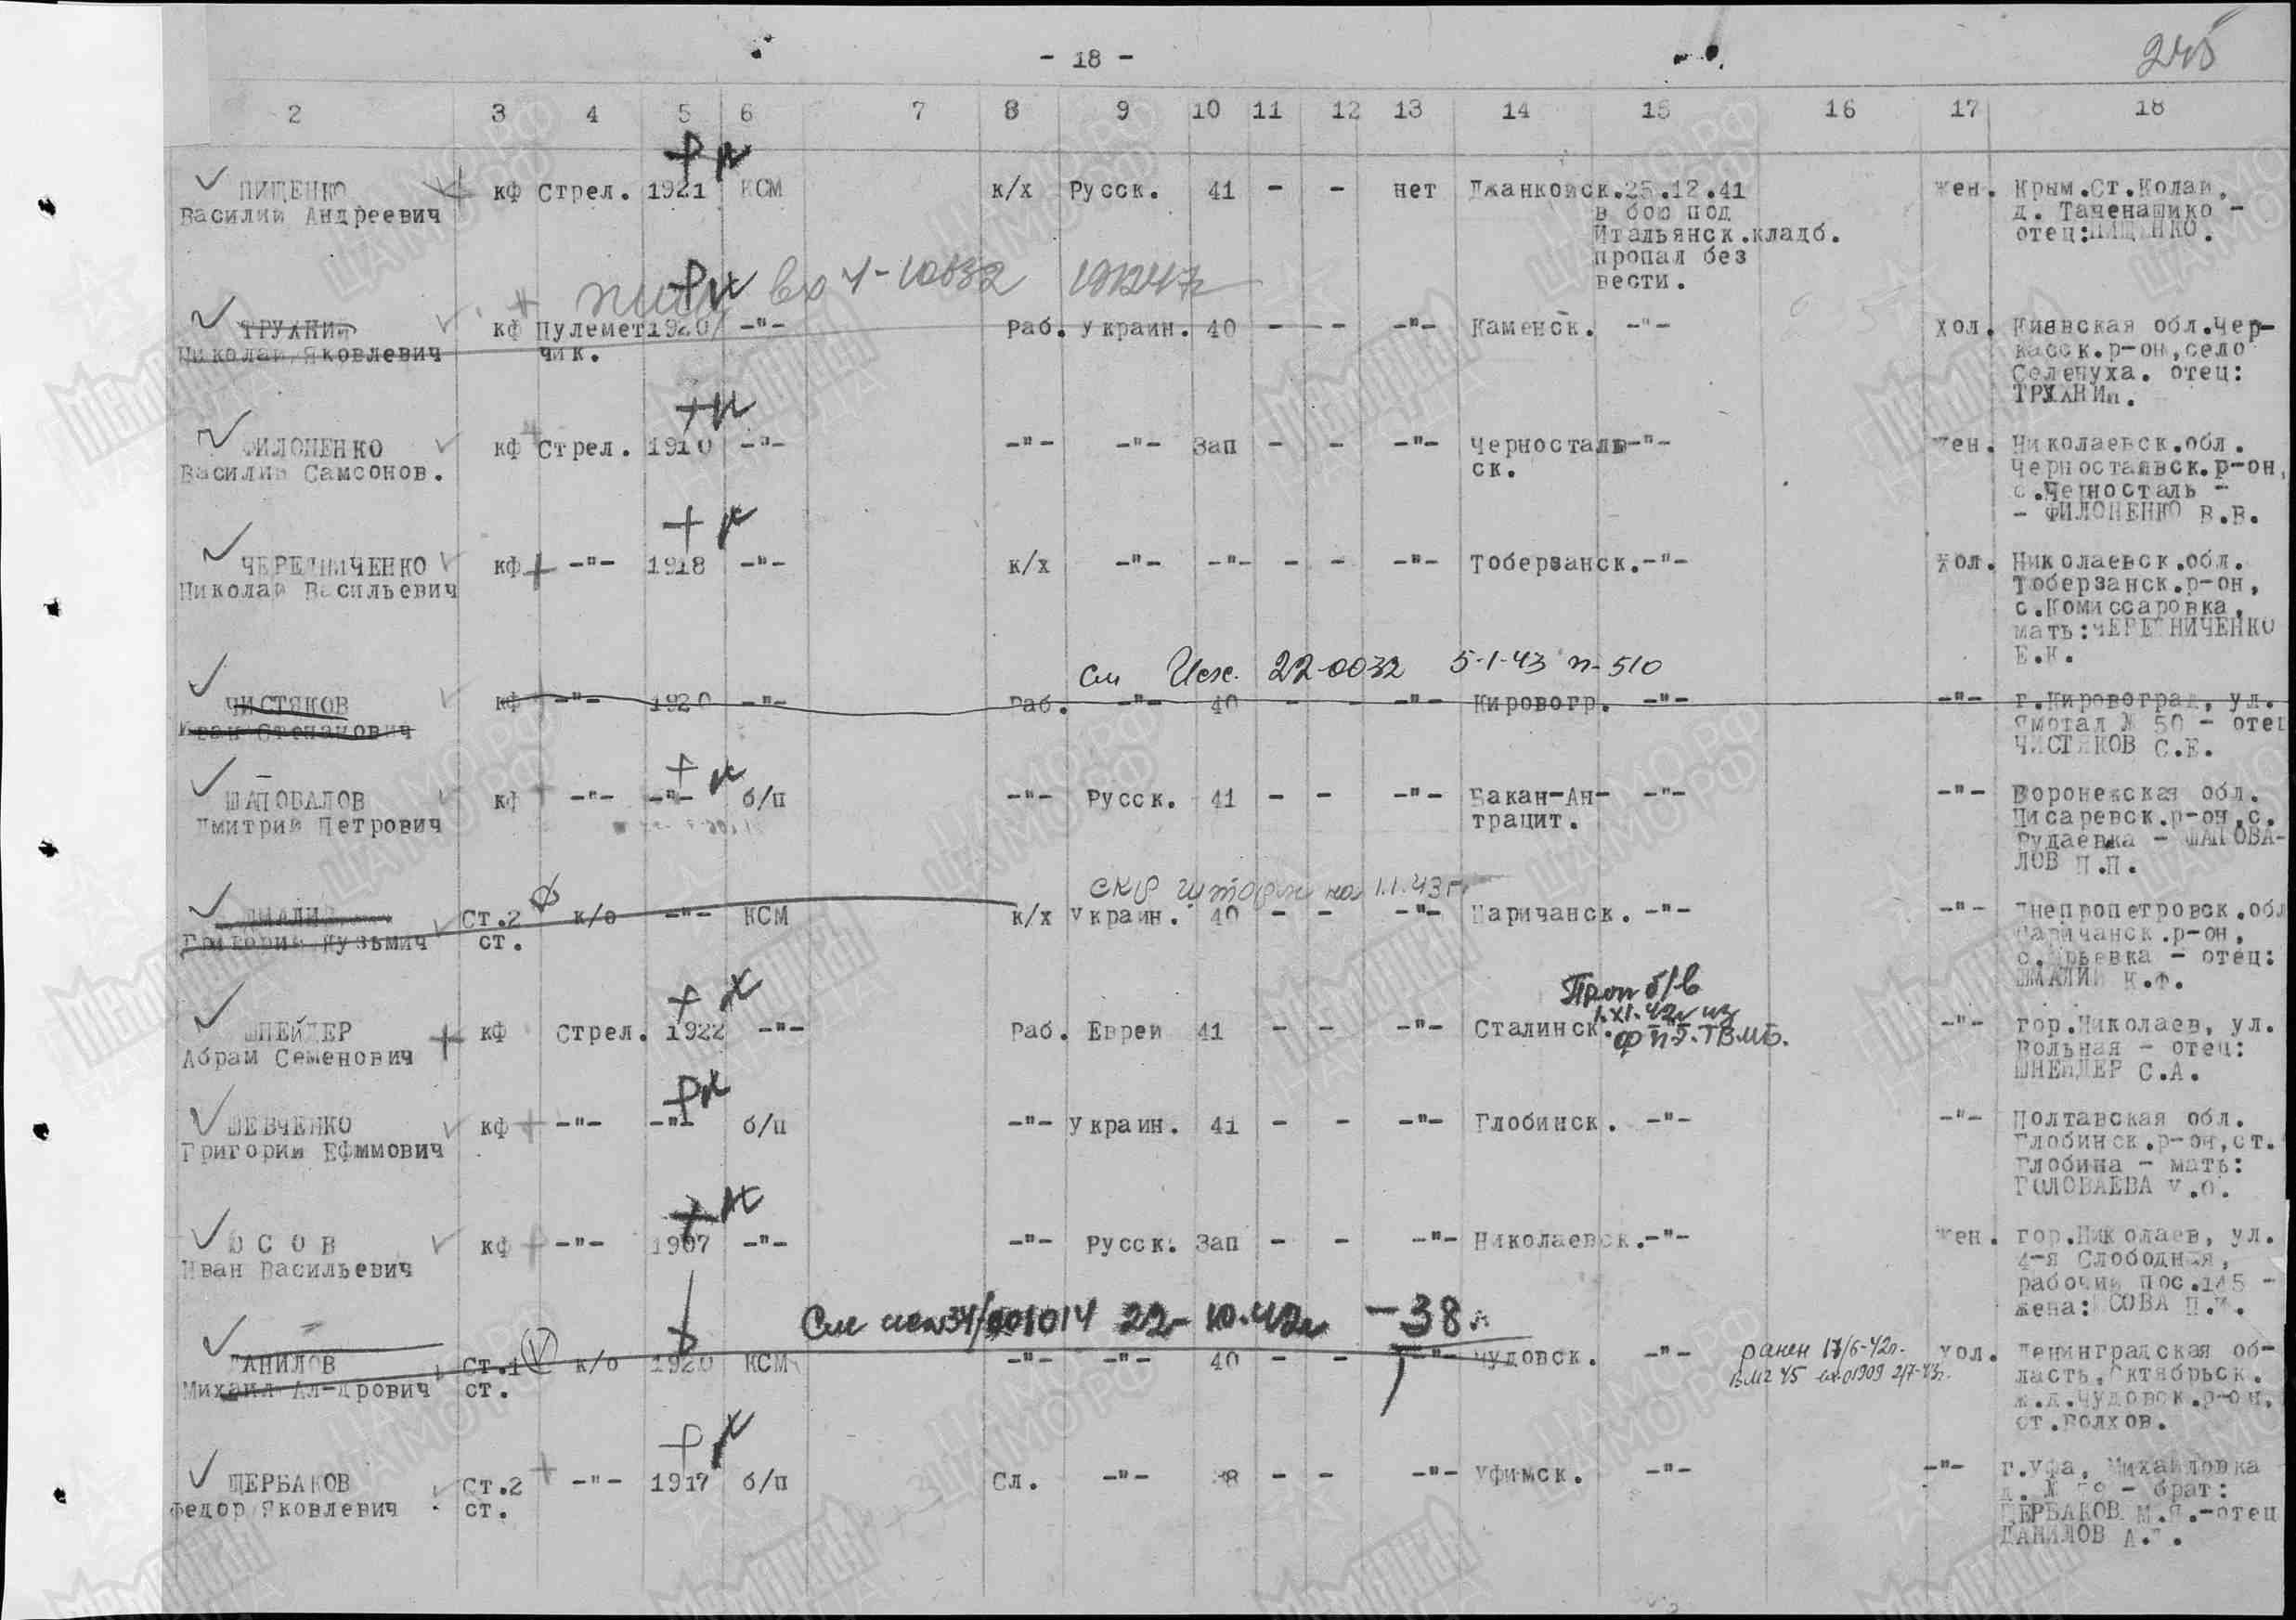 - 18 -
245
2 3 4 5 6 7 8 9 10 11 12 13 14 15 16 17 18
ПИЩЕНКО кф Стрел. 1921 КСМ к/х Русск. 41 - - нет Джанкойск. 25.12.41 жен. Крым.Ст.Колай,
Василий Андреевич в бою под д. Таченашико -
Итальянск.кладб. отец:ПИЩЕНКО.
пропал без
вести.
ТРУХНИЙ кф Пулемет 1920 -"- Раб. Украин. 40 - - -"- Каменск. -"- хол. Киевская обл.Чер-
Николай Яковлевич чик. касск.р-он,село
Селечуха. отец:
ФИЛОНЕНКО кф Стрел. 1910 -"- -"- -"- Зап - - -"- Черносталь- -"- жен. Николаевск.обл.
Василий Самсонов. ск. р-он,
с.Черносталь -
- ФИЛОНЕНКО В.В.
ЧЕРЕДНИЧЕНКО кф -"- 1918 -"- к/х -"- -"- - - -"- Тоберзанск. -"- хол. Николаевск.обл.
Николай Васильевич Тоберзанск.р-он,
с.Комиссаровка,
мать:ЧЕРЕДНИЧЕНКО
Е.К.
См Исх. 22-0032 5-1-43 п-510
ЧИСТЯКОВ кф -"- 1920 -"- Раб. -"- 40 - - -"- Кировогр. -"- -"- г.Кировоград, ул.
Иван Степанович Ямотал № 50 - отец
ЧИСТЯКОВ С.Е.
ШАПОВАЛОВ кф -"- -"- б/п -"- Русск. 41 - - -"- Бакан-Ан- -"- -"- Воронежская обл.
Дмитрий Петрович трацит. Писаревск.р-он,с.
Рудаевка - ШАПОВА-
ЛОВ П.П.
на 1.1.43г.
ШМАЛИЙ Ст.2 к/о -"- КСМ к/х Украин. 40 - - -"- Царичанск. -"- -"- Днепропетровск.обл
Григорий Кузьмич ст. Царичанск.р-он,
с. - отец:
ШМАЛИЙ К.Ф.
Проп б/в
1.XI.42г из
ШНЕЙДЕР кф Стрел. 1922 -"- Раб. Еврей 41 - - -"- Сталинск. -"- -"- гор.Николаев, ул.
Абрам Семенович Вольная - отец:
ШНЕЙДЕР С.А.
ШЕВЧЕНКО кф -"- -"- б/п -"- Украин. 41 - - -"- Глобинск. -"- -"- Полтавская обл.
Григорий Ефимович Глобинск.р-он,ст.
Глобина - мать:
ГОЛОВАЕВА У.О.
ЮСОВ кф -"- 1907 -"- -"- Русск. Зап - - -"- Николаевск. -"- жен. гор.Николаев, ул.
Иван Васильевич 4-я Слободная,
рабочий пос.145 -
жена:ЮСОВА
22-10.42г -38
ДАНИЛОВ Ст.1 к/о 1920 КСМ -"- -"- 40 - - -"- Чудовск. -"- ранен 17/6-42г. хол. Ленинградская об-
Михаил Ал-дрович ст. ласть,Октябрьск.
ж.д.Чудовск.р-он,
ст.Волхов.
ЩЕРБАКОВ Ст.2 -"- 1917 б/п Сл. -"- 38 - - -"- Уфимск. -"- -"- г.Уфа, Михайловка
Федор Яковлевич ст. - брат:
ЩЕРБАКОВ М.Я.-отец
ДАНИЛОВ А.